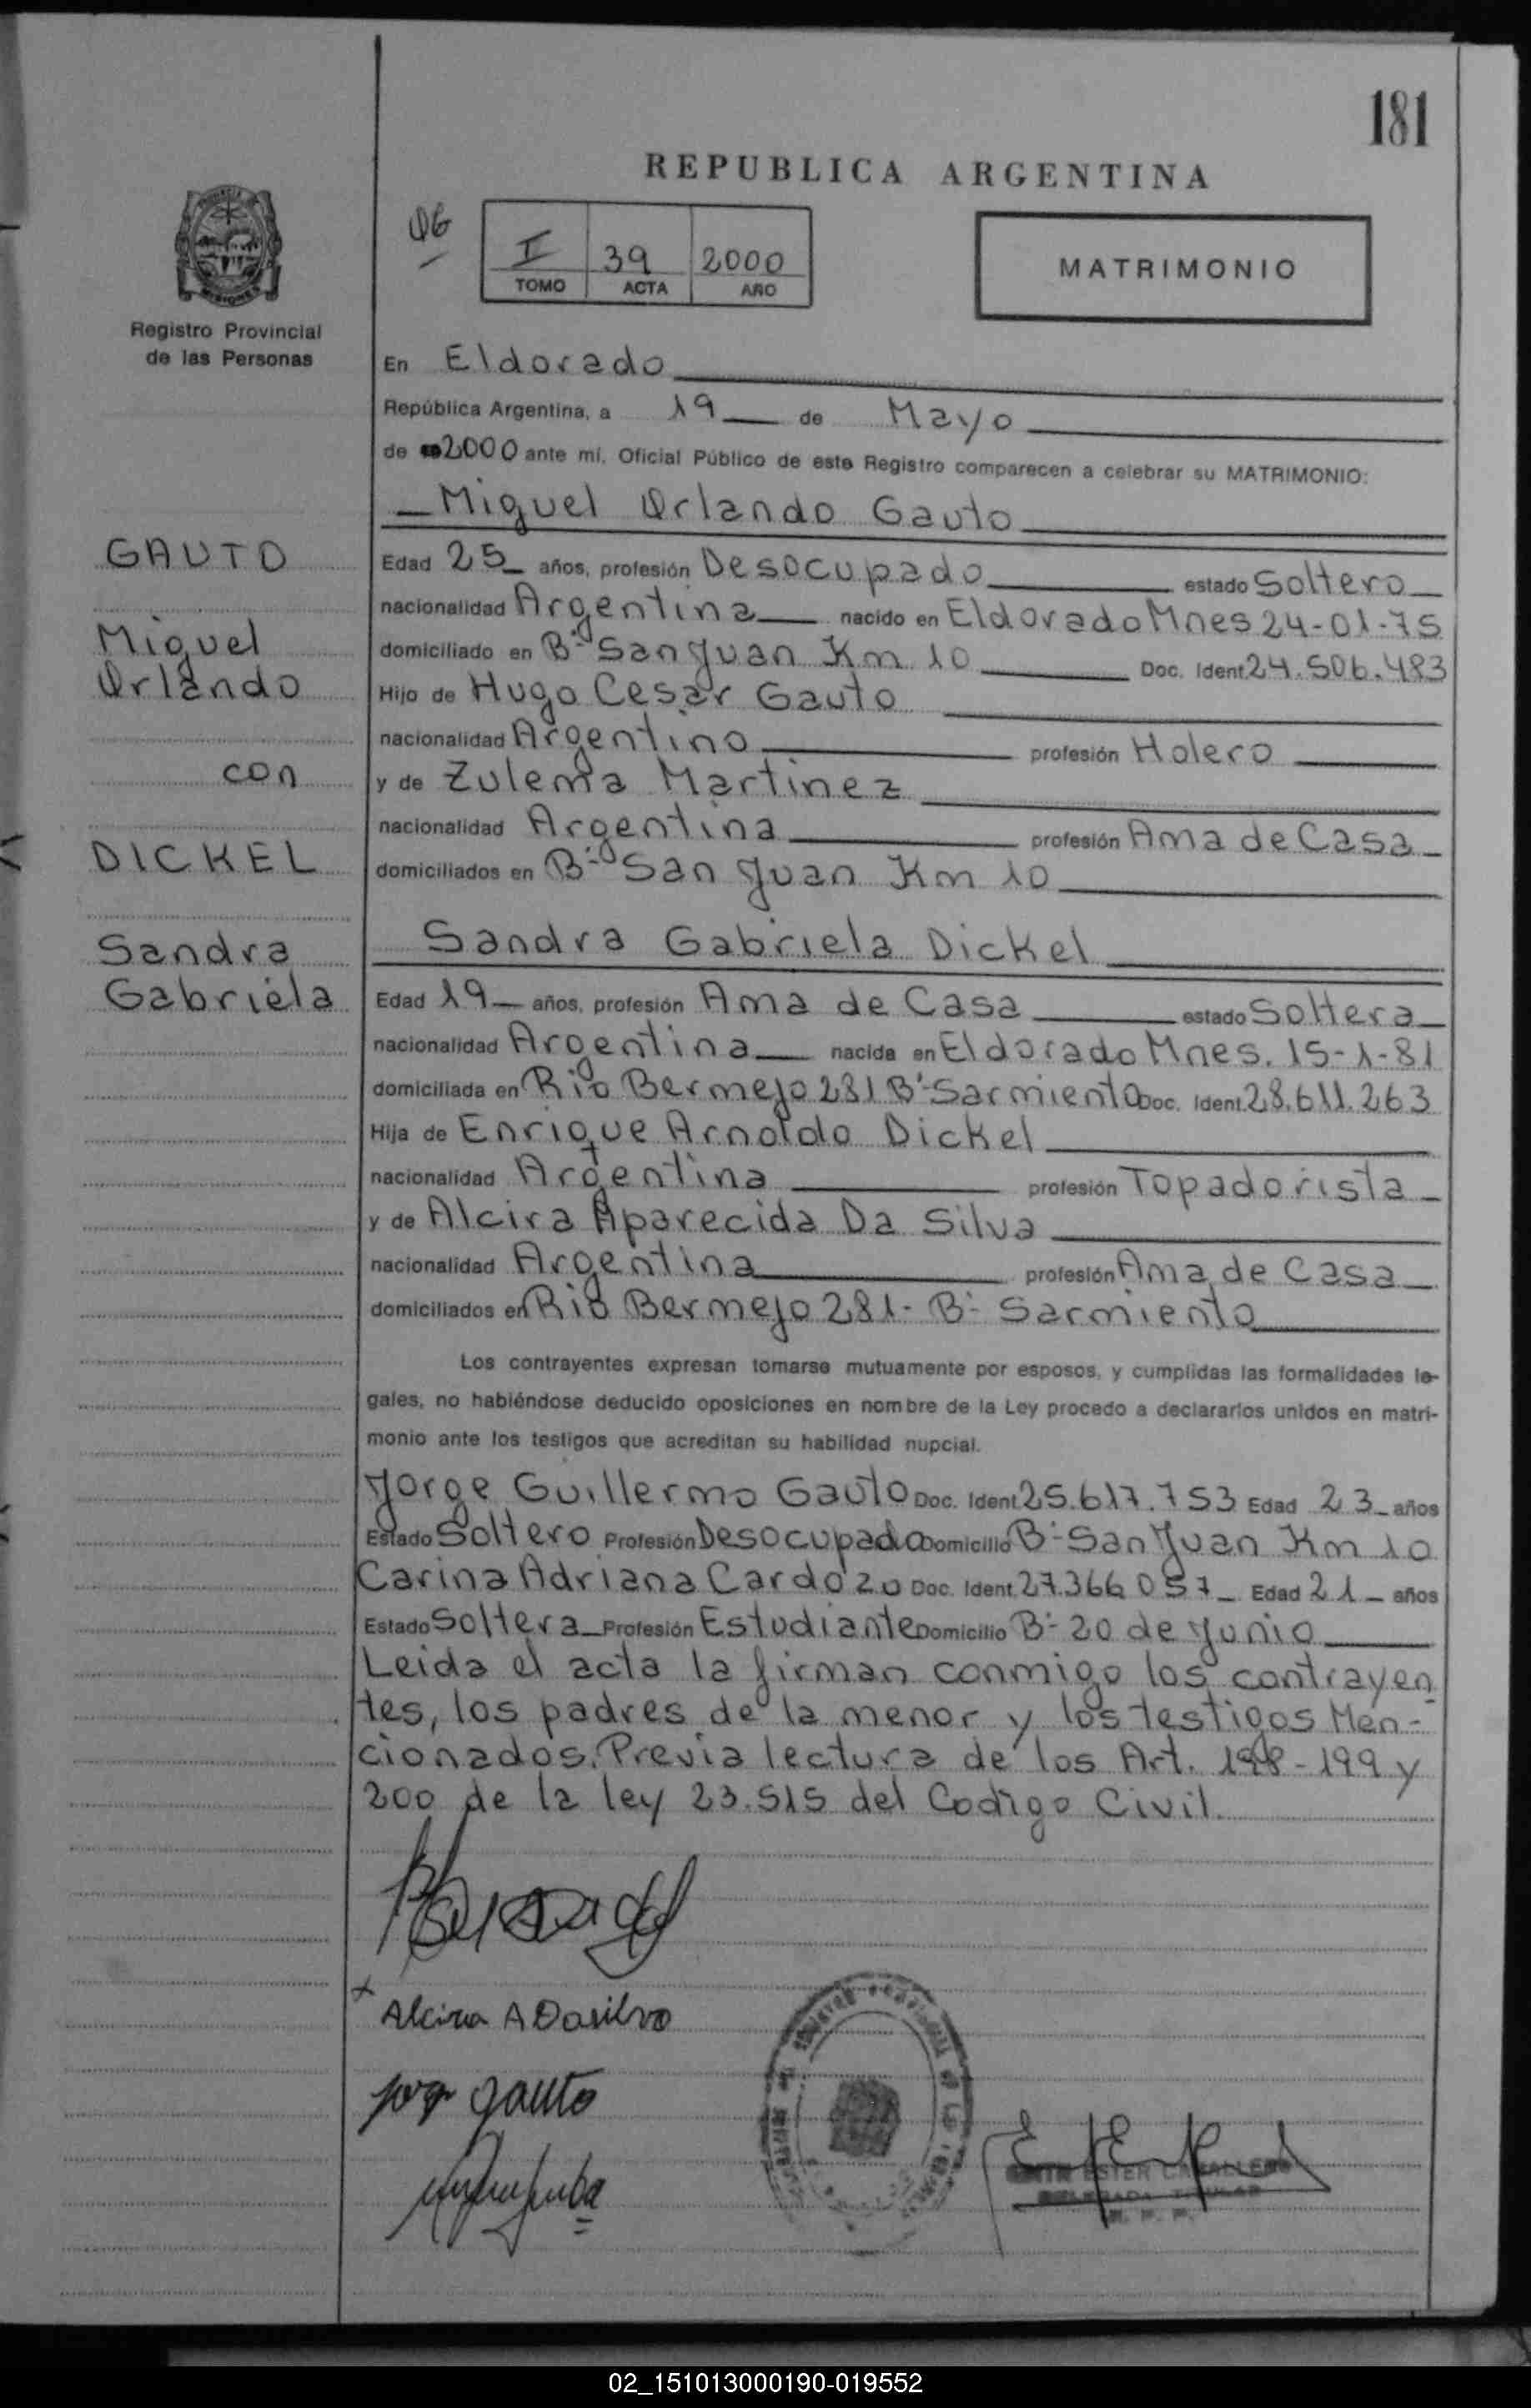 181
REPUBLICA ARGENTINA
MISIONES
Registro Provincial
de las Personas
I 39 2000
TOMO ACTA AÑO
MATRIMONIO
En Eldorado
República Argentina, a 19 de Mayo
de 2000 ante mí, Oficial Público de este Registro comparecen a celebrar su MATRIMONIO:
Miguel Orlando Gauto
GAUTO
Miguel
Orlando
con
DICKEL
Sandra
Gabriela
Edad 25 años, profesión Desocupado estado Soltero
nacionalidad Argentina nacido en Eldorado Mnes 24-01-75
domiciliado en Bº San Juan Km 10 Doc. Ident 24.506.483
Hijo de Hugo Cesar Gauto
nacionalidad Argentino profesión Holero
y de Zulema Martinez
nacionalidad Argentina profesión Ama de Casa
domiciliados en Bº San Juan Km 10
Sandra Gabriela Dickel
Edad 19 años, profesión Ama de Casa estado Soltera
nacionalidad Argentina nacida en Eldorado Mnes. 15-1-81
domiciliada en Rio Bermejo 281 Bº Sarmiento Doc. Ident. 28.611.263
Hija de Enrique Arnoldo Dickel
nacionalidad Argentina profesión Topadorista
y de Alcira Aparecida Da Silva
nacionalidad Argentina profesión Ama de Casa
domiciliados en Rio Bermejo 281- Bº Sarmiento
Los contrayentes expresan tomarse mutuamente por esposos, y cumplidas las formalidades le-
gales, no habiéndose deducido oposiciones en nombre de la Ley procedo a declararlos unidos en matri-
monio ante los testigos que acreditan su habilidad nupcial.
Jorge Guillermo Gauto Doc. Ident 25.617.753 Edad 23 años
Estado Soltero Profesión Desocupado Domicilio Bº San Juan Km 10
Carina Adriana Cardozo Doc. Ident 27.366 057 Edad 21 años
Estado Soltera Profesión Estudiante Domicilio Bº 20 de Junio
Leida el acta la firman conmigo los contrayen
tes, los padres de la menor y los testigos Men-
cionados. Previa lectura de los Art. 198-199 y
200 de la ley 23.515 del Codigo Civil.
Alcira A Dasilva
gauto
ESTER CABALLERO
02_151013000190-019552